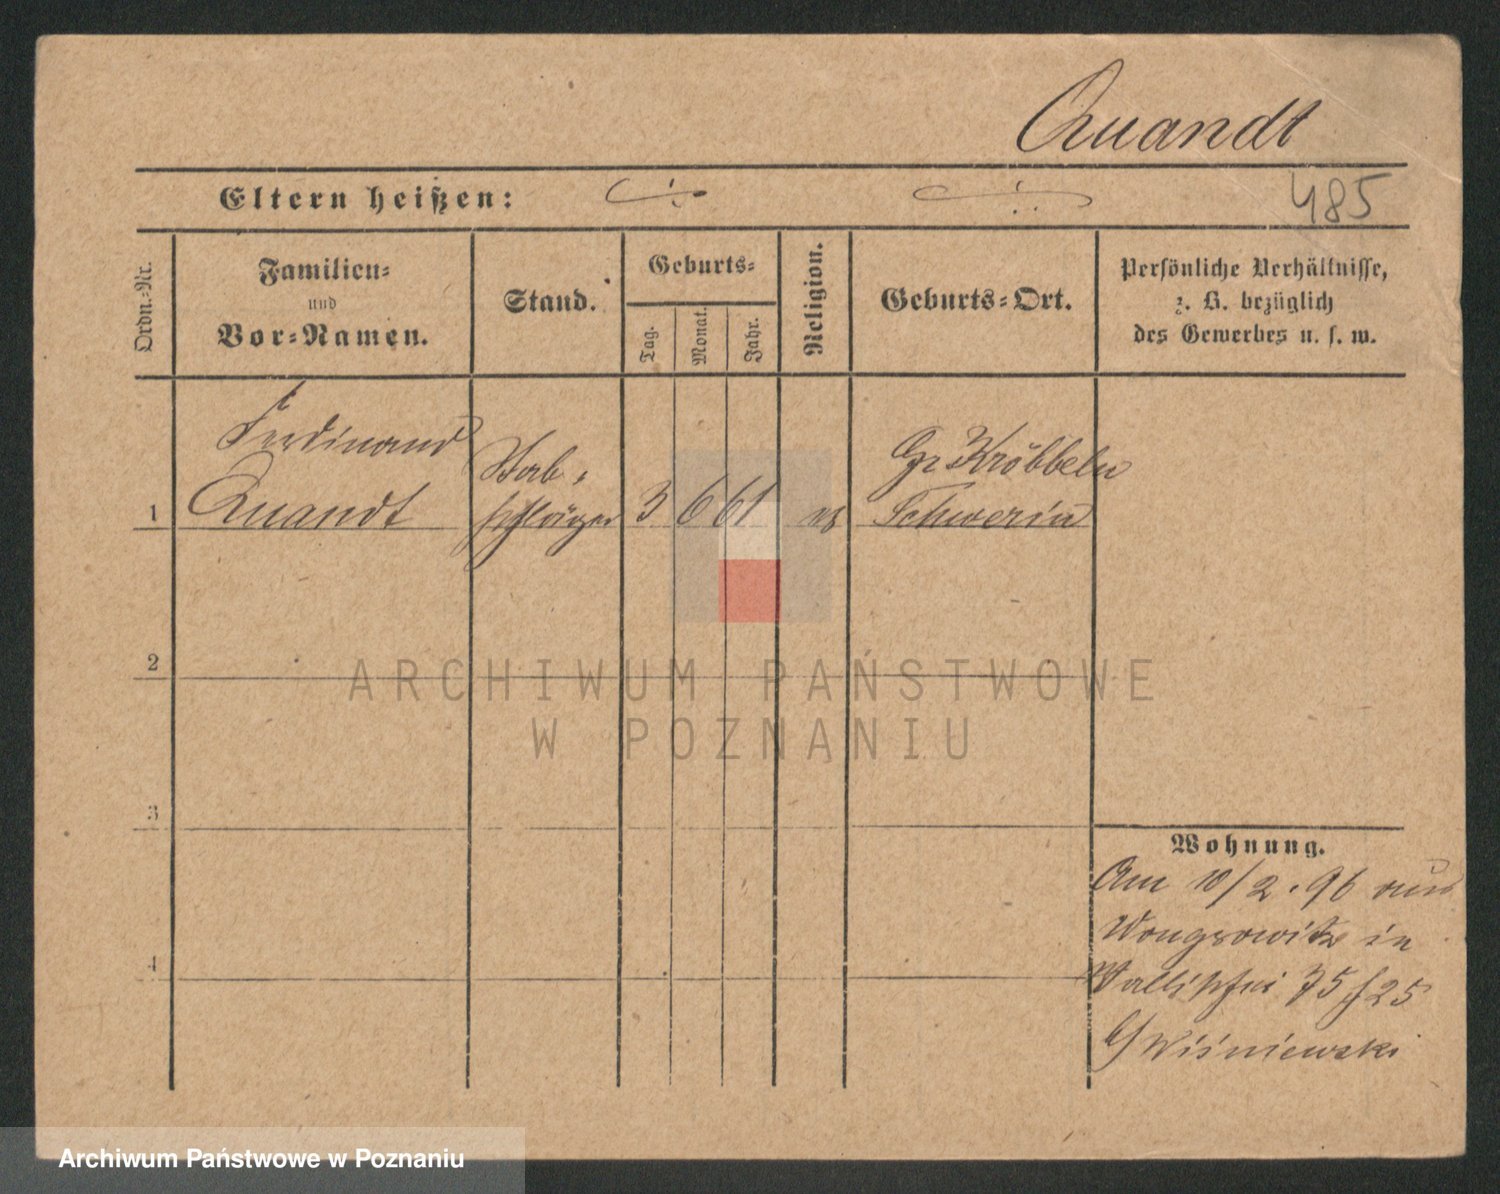 Quandt
Eltern heißen:
485
Ordn.-Nr.
Familien-
und
Vor-Namen.
Stand.
Geburts-
Tag.
Monat.
Jahr.
Religion.
Geburts-Ort.
Persönliche Verhältnisse,
z. B. bezüglich
des Gewerbes u. s. w.
Ferdinand
Quandt
Stab-
schläger
1
3
6
61
Gr Kröbbeln
Schwerin
2
3
4
Wohnung.
Am 10/2.96 aus
Wongrowitz in
Wallischei 75 f 25
b/ Wiśniewski
ARCHIWUM PAŃSTWOWE
W POZNANIU
Archiwum Państwowe w Poznaniu